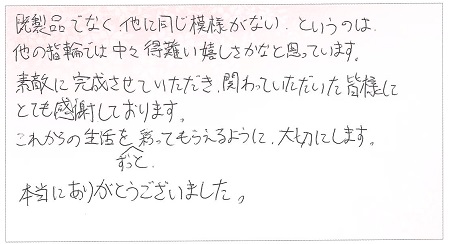 既製品でなく、他に同じ模様がない、というのは、
他の指輪では中々得難い嬉しさかなと思っています。
素敵に完成させていただき、関わっていただいた皆様に
とても感謝しております。
これからの生活を彩ってもらえるように、大切にします。
ずっと
本当にありがとうございました。